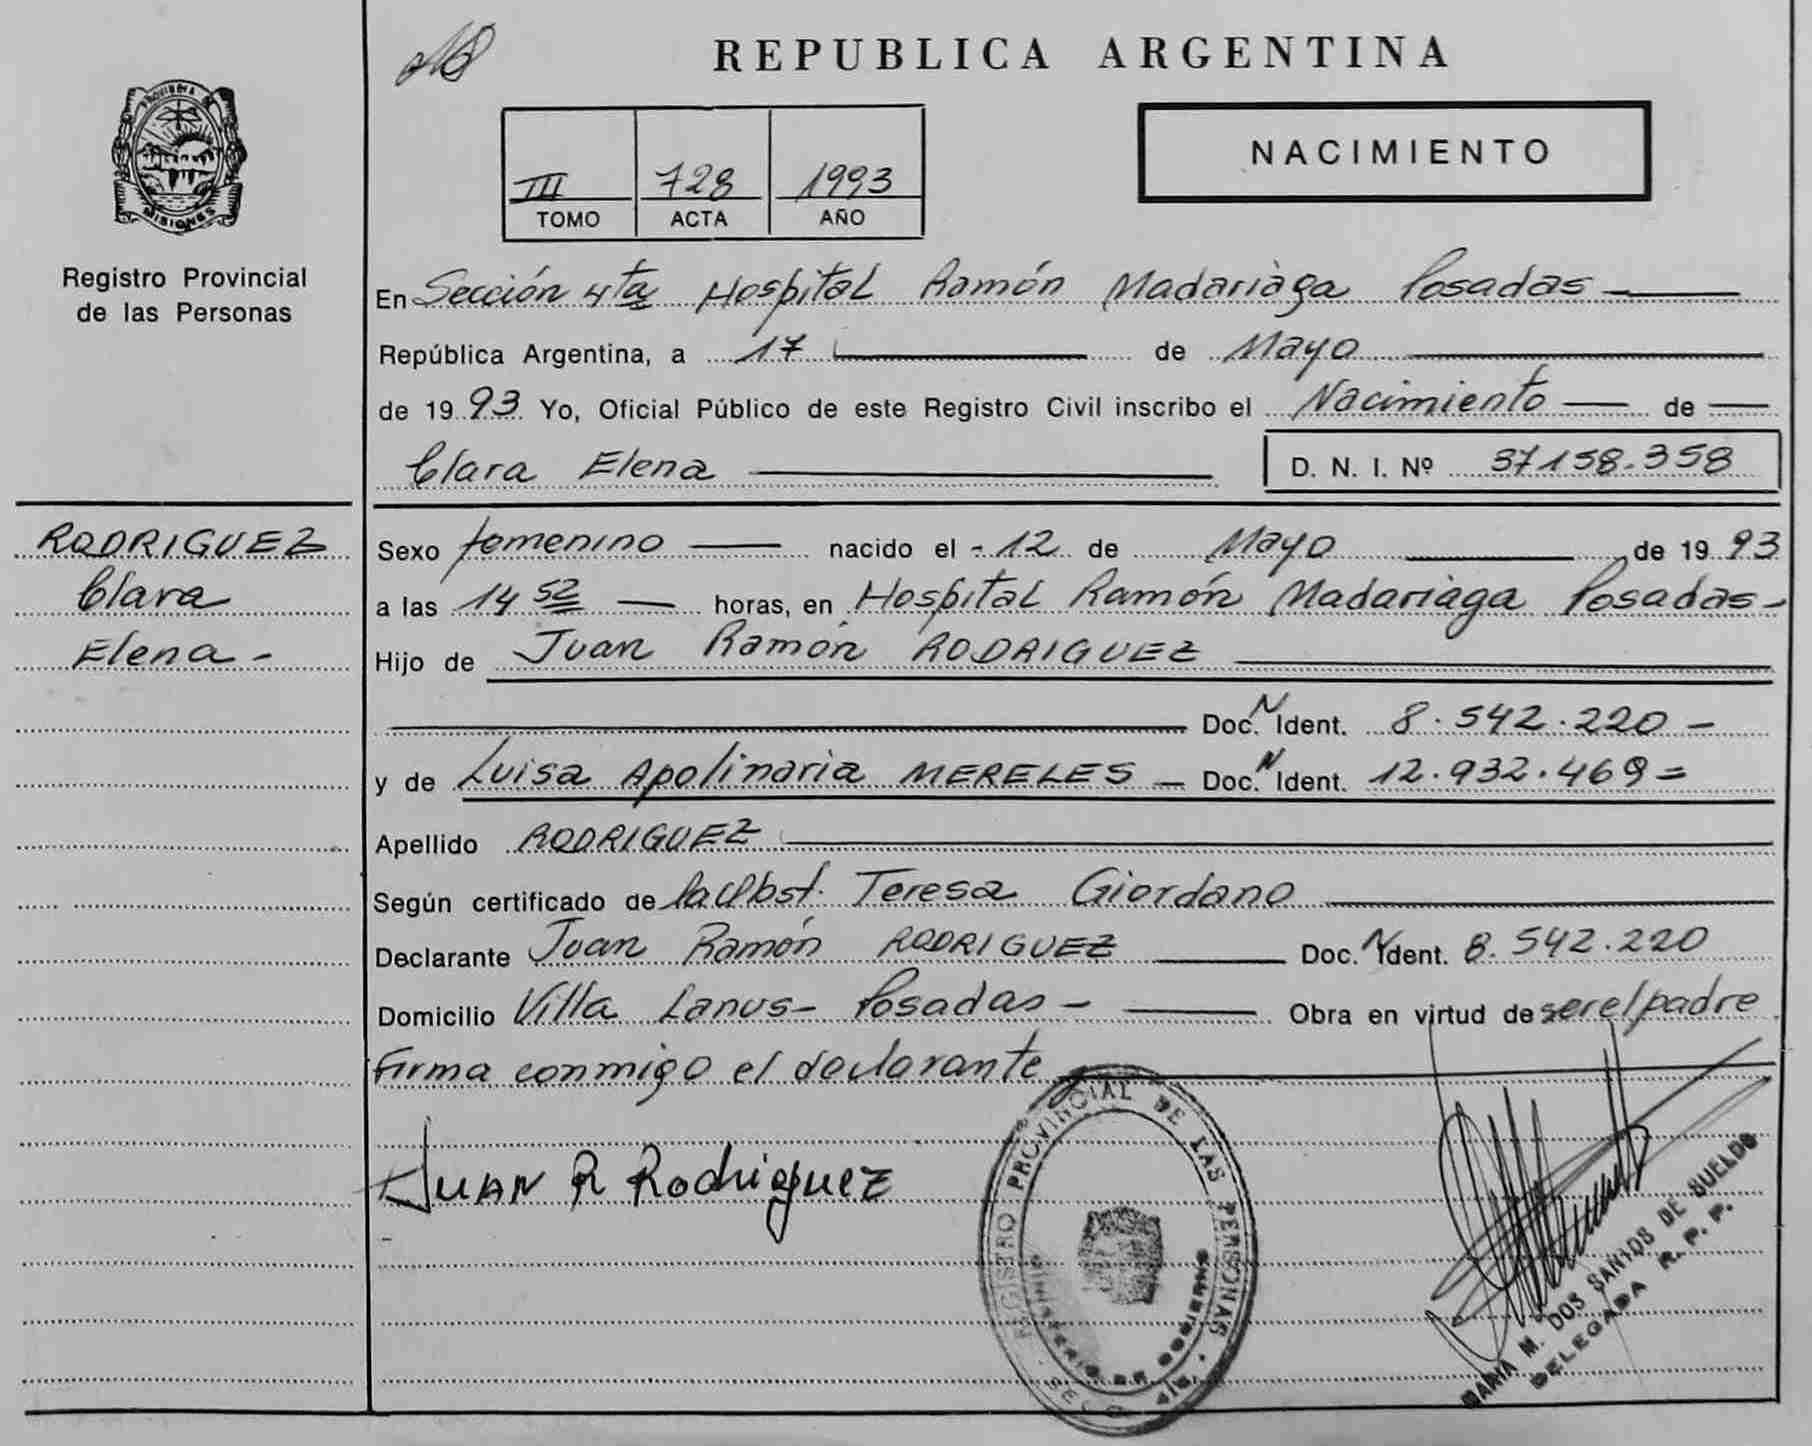 REPUBLICA ARGENTINA
NACIMIENTO
III 728 1993
TOMO ACTA AÑO
PROVINCIA DE
MISIONES
Registro Provincial
de las Personas
En Sección 4ta Hospital Ramón Madariaga Posadas
República Argentina, a 17 de Mayo
de 1993 Yo, Oficial Público de este Registro Civil inscribo el Nacimiento de
Clara Elena D. N. I. Nº 37158.358
RODRIGUEZ
Clara
Elena -
Sexo femenino nacido el - 12 de Mayo de 1993
a las 14 52 horas, en Hospital Ramón Madariaga Posadas -
Hijo de Juan Ramón RODRIGUEZ
Doc. N Ident. 8.542.220 -
y de Luisa Apolinaria MERELES - Doc. N Ident. 12.932.469 =
Apellido RODRIGUEZ
Según certificado de la Obst. Teresa Giordano
Declarante Juan Ramón RODRIGUEZ Doc. N Ident. 8.542.220
Domicilio Villa Lanus - Posadas - Obra en virtud de ser el padre
Firma conmigo el declarante
JUAN R Rodriguez
REGISTRO PROVINCIAL DE LAS PERSONAS
MINISTERIO DE GOBIERNO
MARIA M. DOS SANTOS DE BUELDO
DELEGADA R. P. P.